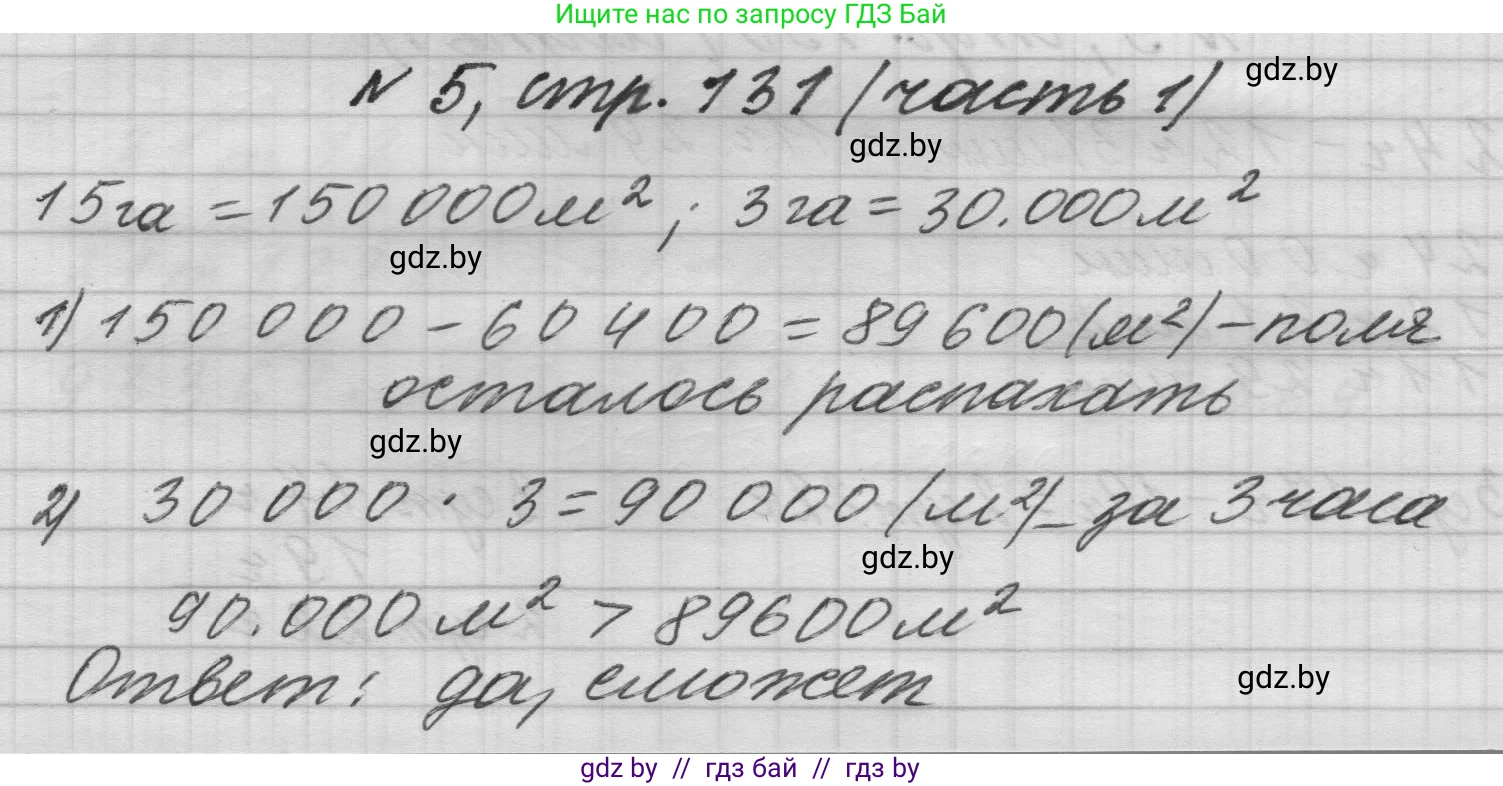 Ищите нас по запросу ГДЗ Бай
N 5, стр. 131 (часть 1)
gdz.by
gdz.by
15 га = 150 000 м² ; 3 га = 30.000 м²
gdz.by
1) 150 000 - 60 400 = 89 600 (м²) - поля
осталось распахать
gdz.by
2) 30 000 · 3 = 90 000 (м²) - за 3 часа
gdz.by
90.000 м² > 89600 м²
Ответ: да, сможет
gdz.by
gdz by // гдз бай // гдз by